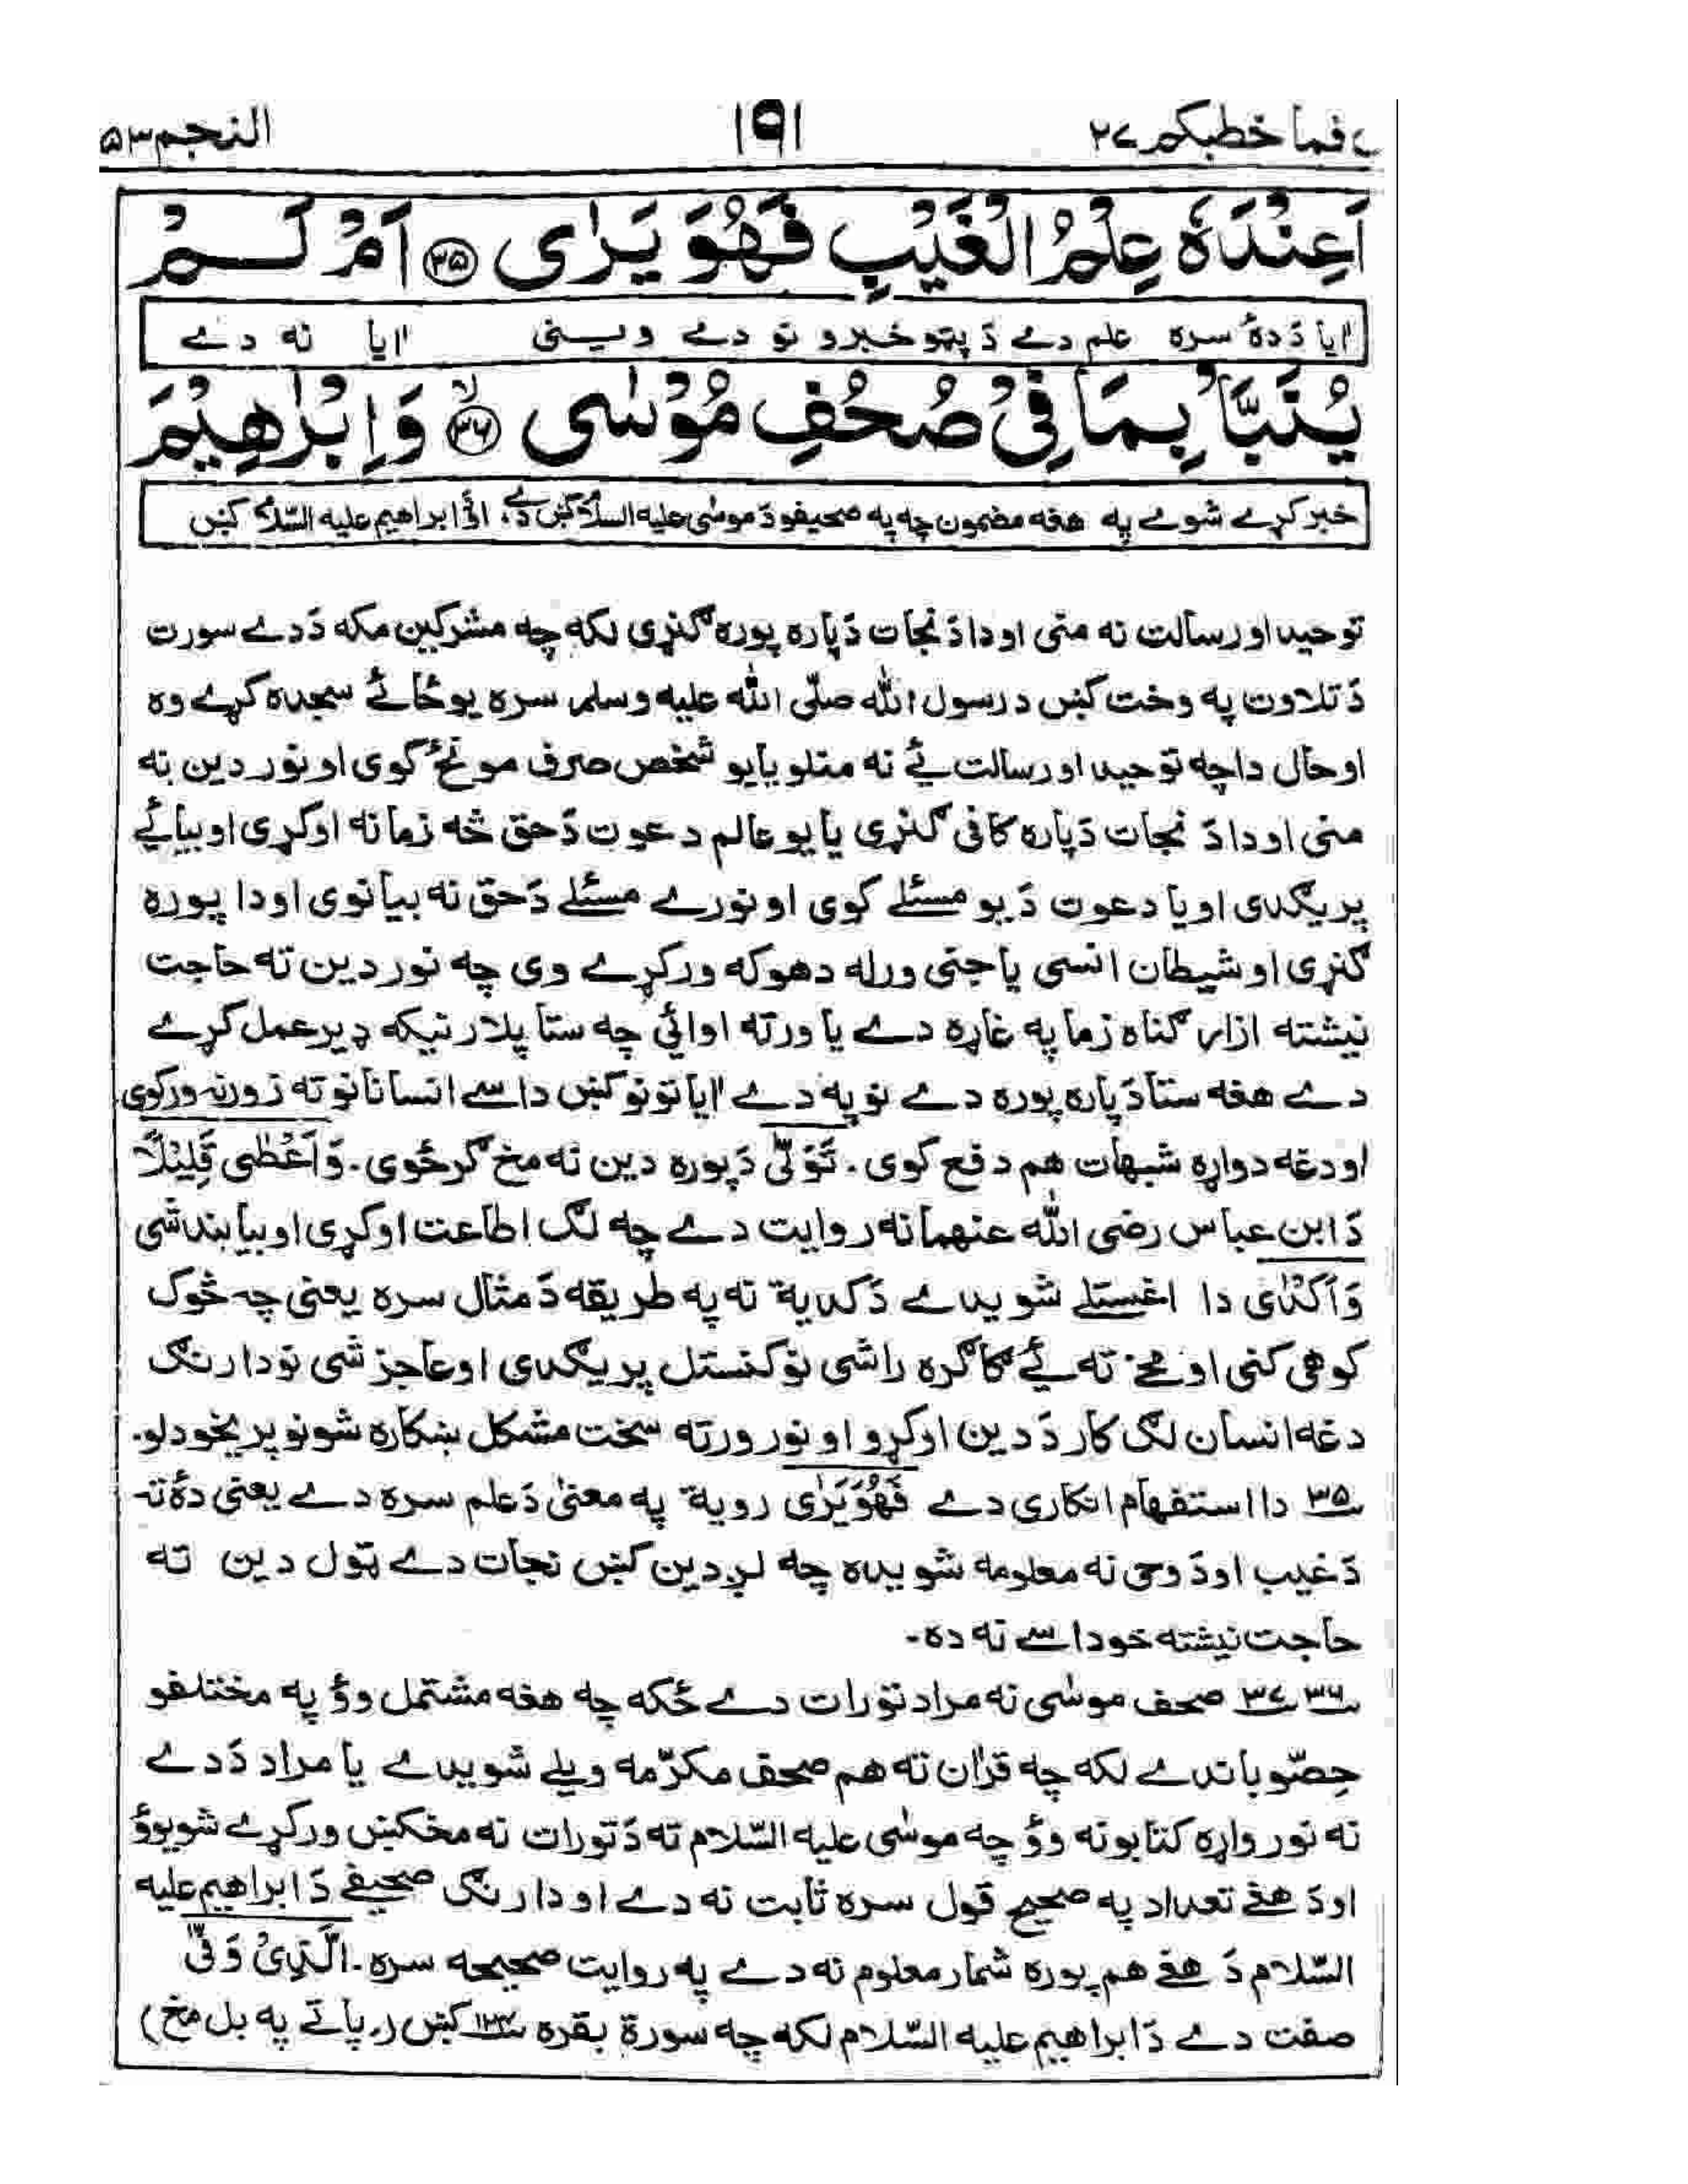 قال فما خطبكم ٢٧ ١٩١ النجم ٥٣
اَعِنْدَهٗ عِلْمُ الْغَيْبِ فَهُوَ يَرٰى ۝٣٥ اَمْ لَمْ
اٰیا دَ دۀ سره علم دے دَ پټو خبرو نو دے وینی اٰیا نه دے
يُنَبَّاْ بِمَا فِيْ صُحُفِ مُوْسٰى ۝٣٦ وَاِبْرٰهِيْمَ
خبر کړے شوے په هغه مضمون چه په صحیفو دَ موسٰی علیه السلام کښ دے، او دَ ابراهیم علیه السّلام کښ
توحید او رسالت نه منی او دا دَ نجات دَپاره پوره ګنړی لکه چه مشرکین مکه دَ دے سورت
دَ تلاوت په وخت کښ د رسول الله صلّی الله علیه وسلم سره یو ځائے سجده کړے وه
او حال دا چه توحید او رسالت ئے نه منلو یا یو شخص صرف مونځ کوی او نور دین نه
منی او دا دَ نجات دَپاره کافی ګنړی یا یو عالم دعوت دَ حق څه زمانه اوکړی او بیا ئے
پریګدی او یا دعوت دَ یو مسئلے کوی او نورے مسئلے دَ حق نه بیانوی او دا پوره
ګنړی او شیطان انسی یا جنی ورله دهوکه ورکړے وی چه نور دین ته حاجت
نیشته ازار ګناه زما په غاړه دے یا ورته اوائی چه ستا پلار نیکه ډیر عمل کړے
دے هغه ستا دَپاره پوره دے نو په دے اٰیاتونو کښ داسے انسانانو ته زورنه ورکوی
او دغه دواړه شبهات هم دفع کوی۔ تَوَلّٰی دَ پوره دین نه مخ ګرځوی۔ وَاَعْطٰی قَلِیْلًا
دَ ابن عباس رضی الله عنهما نه روایت دے چه لګ اطاعت اوکړی او بیا بند شی
وَاَکْدٰی دا اغستلے شویدے دَ کدیة نه په طریقه دَ مثال سره یعنی چه څوک
کوهی کنی او مخے ته ئے کاګره راشی نو کنستل پریګدی او عاجز شی نو دارنګ
دغه انسان لګ کار دَ دین اوکړو او نور ورته سخت مشکل ښکاره شو نو پریخودلو۔
٣٥ دا استفهام انکاری دے فَهُوَ یَرٰی رویة په معنیٰ دَ علم سره دے یعنی دۀ ته
دَ غیب او دَ وحی نه معلومه شویده چه لږ دین کښ نجات دے ټول دین ته
حاجت نیشته خو داسے نه ده۔
٣٦ ٣٧ صحف موسٰی نه مراد تورات دے ځکه چه هغه مشتمل وؤ په مختلفو
حِصّو باندے لکه چه قرآن ته هم صحف مکرّمه ویلے شویدے یا مراد دَ دے
نه نور واړه کتابونه وؤ چه موسٰی علیه السّلام ته دَ تورات نه مخکښ ورکړے شویوؤ
او دَ هغے تعداد په صحیح قول سره ثابت نه دے او دارنګ صحیفے دَ ابراهیم علیه
السّلام دَ هغے هم پوره شمار معلوم نه دے په روایت صحیحه سره۔ الَّذِیْ وَفّٰی
صفت دے دَ ابراهیم علیه السّلام لکه چه سورة بقره ١٢٤ کښ (پاتے په بل مخ)